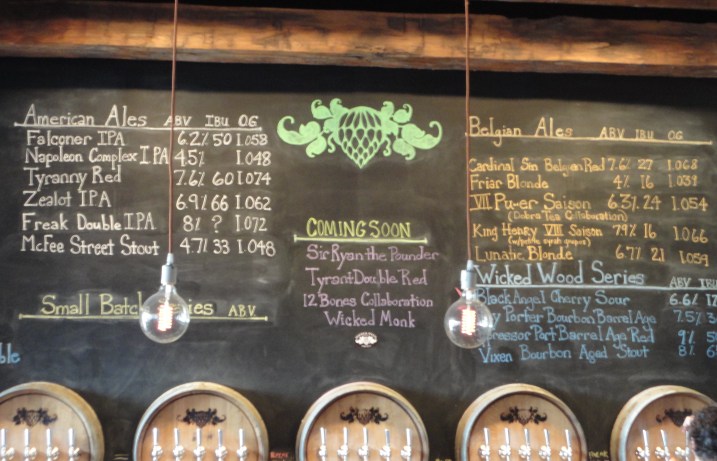 American Ales ABV IBU OG
Falconer IPA 6.2% 50 1.058
Napoleon Complex IPA 4.5% 1.048
Tyranny Red 7.6% 60 1.074
Zealot IPA 6.9% 66 1.062
Freak Double IPA 8% ? 1.072
McFee Street Stout 4.7% 33 1.048
Small Batch ABV
COMING SOON
Sir Ryan the Pounder
Tyrant Double Red
12 Bones Collaboration
Wicked Monk
Belgian Ales ABV IBU OG
Cardinal Sin Belgian Red 7.6% 27 1.068
Friar Blonde 4% 16 1.039
VII Pu-er Saison 6.3% 24 1.054
(Dobra Tea Collaboration)
King Henry VIII Saison 7.9% 16 1.066
Lunatic Blonde 6.7% 21 1.059
Wicked Wood Series ABV IBU
Black Angel Cherry Sour 6.6%
Porter Bourbon Barrel Age 7.5%
Port Barrel Age Red 9%
Vixen Bourbon Aged Stout 8%